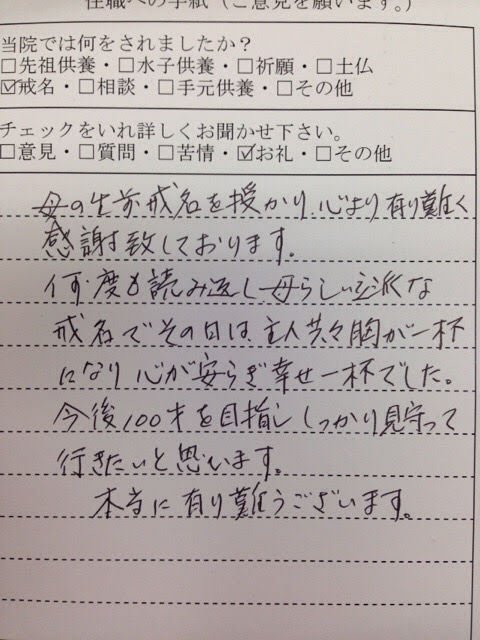 住職への手紙（ご意見を願います。）
当院では何をされましたか？
□先祖供養・□水子供養・□祈願・□土仏
☑戒名・□相談・□手元供養・□その他
チェックをいれ詳しくお聞かせ下さい。
□意見・□質問・□苦情・☑お礼・□その他
母の生前戒名を授かり、心より有り難く
感謝致しております。
何度も読み返し母らしい立派な
戒名でその日は主人共々胸が一杯
になり心が安らぎ幸せ一杯でした。
今後100才を目指ししっかり見守って
行きたいと思います。
本当に有り難うございます。